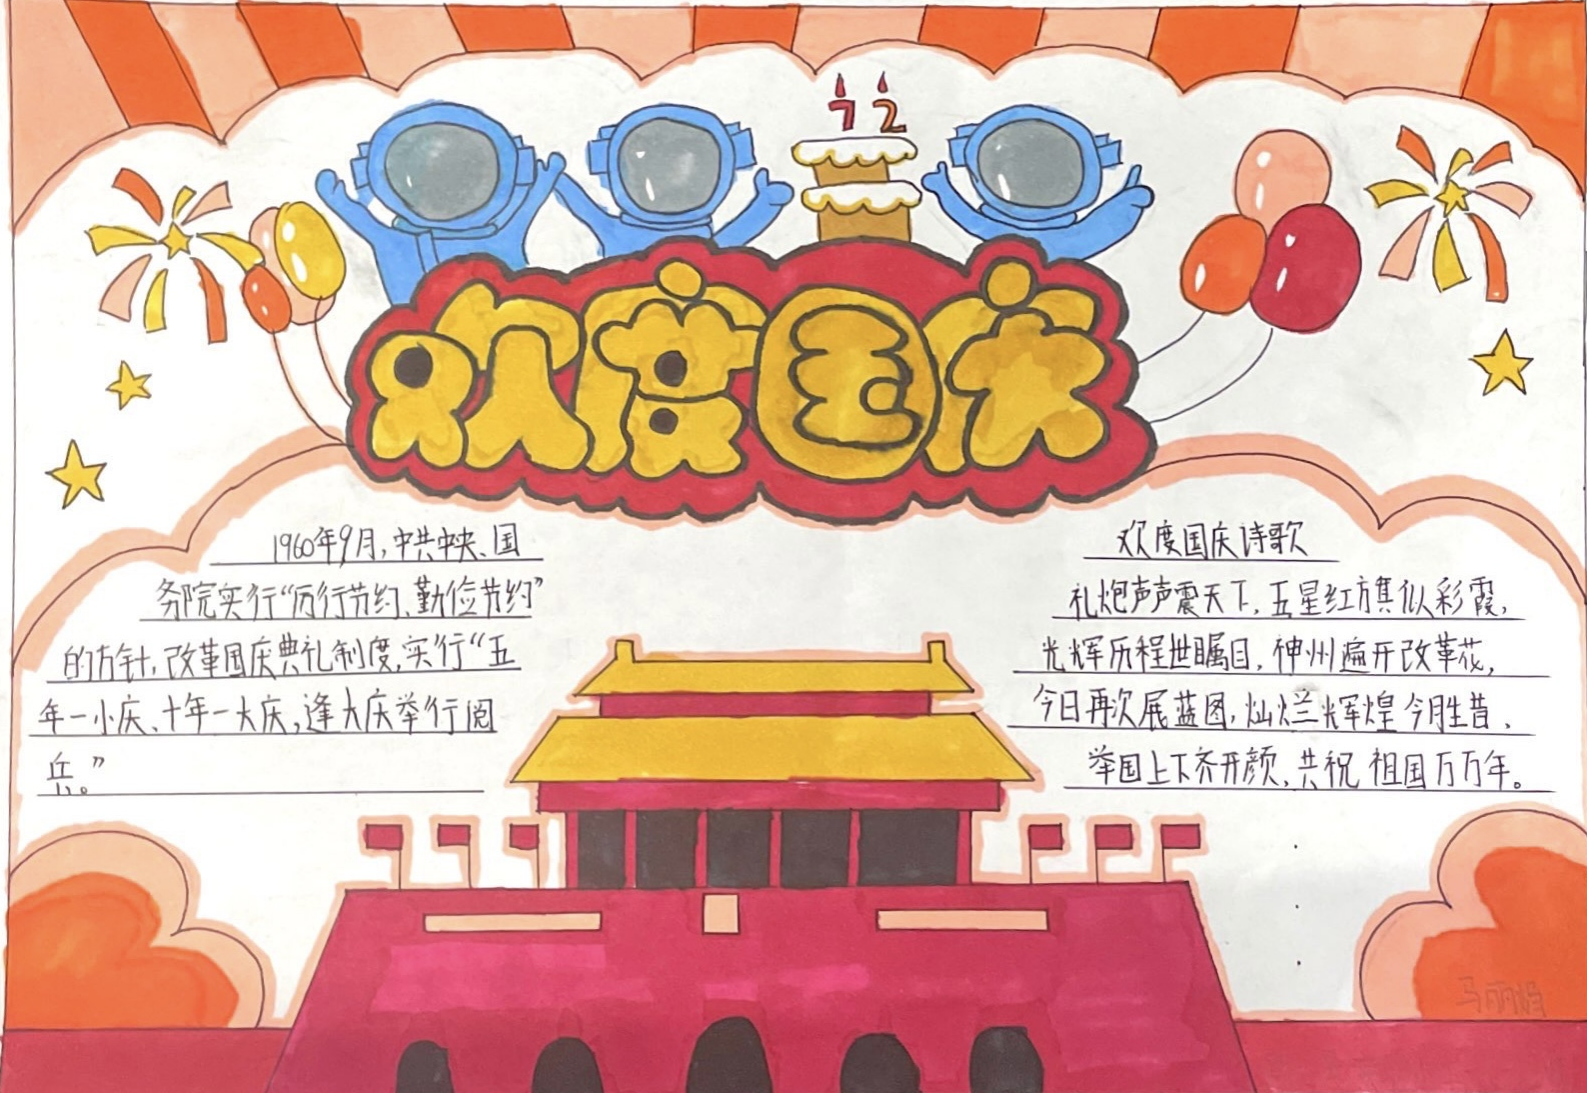 72
欢度国庆
1960年9月,中共中央、国
务院实行“厉行节约、勤俭节约”
的方针,改革国庆典礼制度,实行“五
年一小庆、十年一大庆,逢大庆举行阅
兵。”
欢度国庆诗歌
礼炮声声震天下,五星红旗似彩霞,
光辉历程世瞩目,神州遍开改革花,
今日再次展蓝图,灿烂辉煌今胜昔、
举国上下齐开颜,共祝祖国万万年。